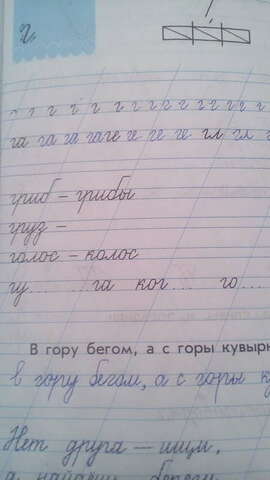 г
г г г г г г г г г г г г г г г
га га га га ге ге ге ге гл гл
гриб – грибы
груз –
голос – колос
гу... ...га ког... го...
В гору бегом, а с горы кувыр
В гору бегом, а с горы к
Нет друга — ищи,
а найдёшь береги